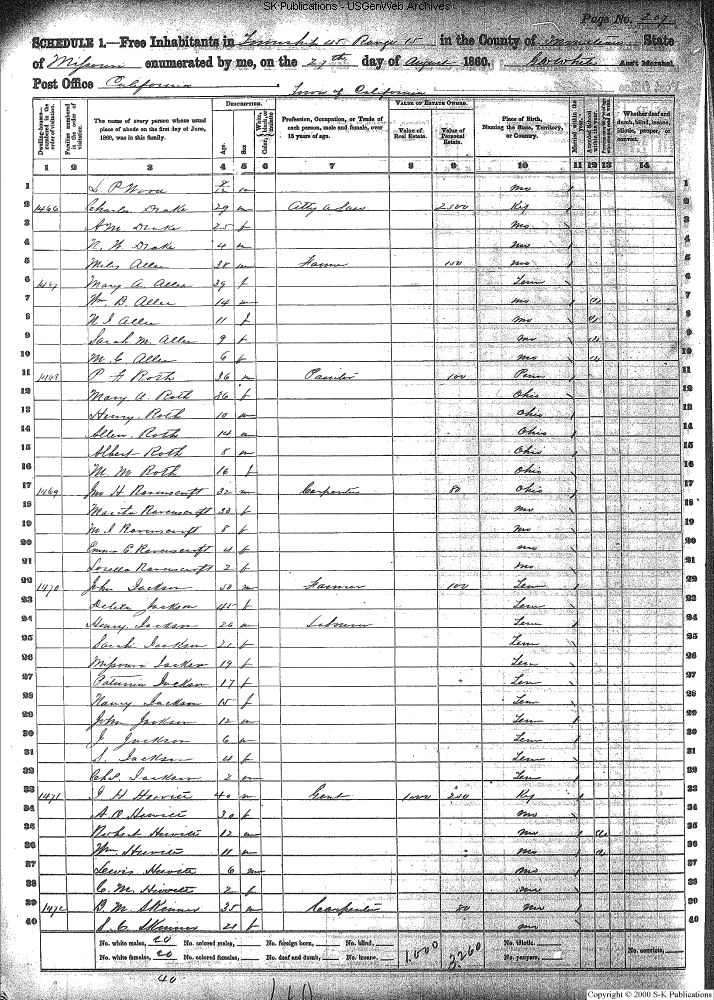 SK Publications - USGenWeb Archives
Page No. 207
SCHEDULE 1.—Free Inhabitants in Township 45 Range 15 in the County of Moniteau State
of Missouri enumerated by me, on the 27th day of August 1860. Ass't Marshal.
Post Office California Town of California
Dwelling-houses—numbered in the order of visitation.
Families numbered in the order of visitation.
The name of every person whose usual place of abode on the first day of June, 1860, was in this family.
DESCRIPTION.
Age.
Sex.
Color, White, black, or mulatto.
Profession, Occupation, or Trade of each person, male and female, over 15 years of age.
VALUE OF ESTATE OWNED.
Value of Real Estate.
Value of Personal Estate.
Place of Birth, Naming the State, Territory, or Country.
Whether deaf and dumb, blind, insane, idiotic, pauper, or convict.
1 2 3 4 5 6 7 8 9 10 11 12 13 14
1 S. P. Wood m Mo 1
2 1466 Charles Drake 29 m Atty a Law 2500 Ky 2
3 A M Drake 25 f Mo 3
4 N. W. Drake 4 m Mo 4
5 Miles Allee 38 m Farmer 150 Mo 5
6 1467 Mary A. Allee 39 f Tenn 6
7 Wm B Allee 14 m Mo 7
8 N J Allee 11 f Mo 8
9 Sarah M. Allee 9 f Mo 9
10 M. E Allee 6 f Mo 10
11 1468 P. F Roth 36 m Painter 100 Penn 11
12 Mary A. Roth 36 f Ohio 12
13 Henry Roth 10 m Ohio 13
14 Allen Roth 14 m Ohio 14
15 Albert Roth 8 m Ohio 15
16 M. M Roth 16 f Ohio 16
17 1469 Jno H Ravenscroft 32 m Carpenter 80 Ohio 17
18 Ravenscroft 23 f Mo 18
19 M. J Ravenscroft 8 f Mo 19
20 Emma E Ravenscroft 4 f Mo 20
21 Lorella Ravenscroft 2 f Mo 21
22 1470 John Jackson 50 m Farmer 100 Tenn 22
23 Jackson 45 f Tenn 23
24 Henry Jackson 26 m Laborer Tenn 24
25 Sarah Jackson 21 f Tenn 25
26 Missouri Jackson 19 f Tenn 26
27 Jackson 17 f Tenn 27
28 Nancy Jackson 15 f Tenn 28
29 John Jackson 12 m Tenn 29
30 J Jackson 6 m Tenn 30
31 S. Jackson 4 f Tenn 31
32 Chs. Jackson 2 m Tenn 32
33 1471 J H Hewitt 40 m Gent 1000 250 Ky 33
34 A. O Hewitt 30 f Mo 34
35 Robert Hewitt 12 m Mo 35
36 Wm. Hewitt 11 m Mo 36
37 Lewis Hewitt 6 m Mo 37
38 C. M. Hewitt 2 f Mo 38
39 1472 B. M. Skinner 35 m Carpenter 80 Mo 39
40 S. C Skinner 21 f Mo 40
No. white males, 20 No. colored males, No. foreign born, No. blind, 1,000 3260 No. idiotic, No. convicts,
No. white females, 20 No. colored females, No. deaf and dumb, No. insane, No. paupers,
40
Copyright © 2000 S-K Publications